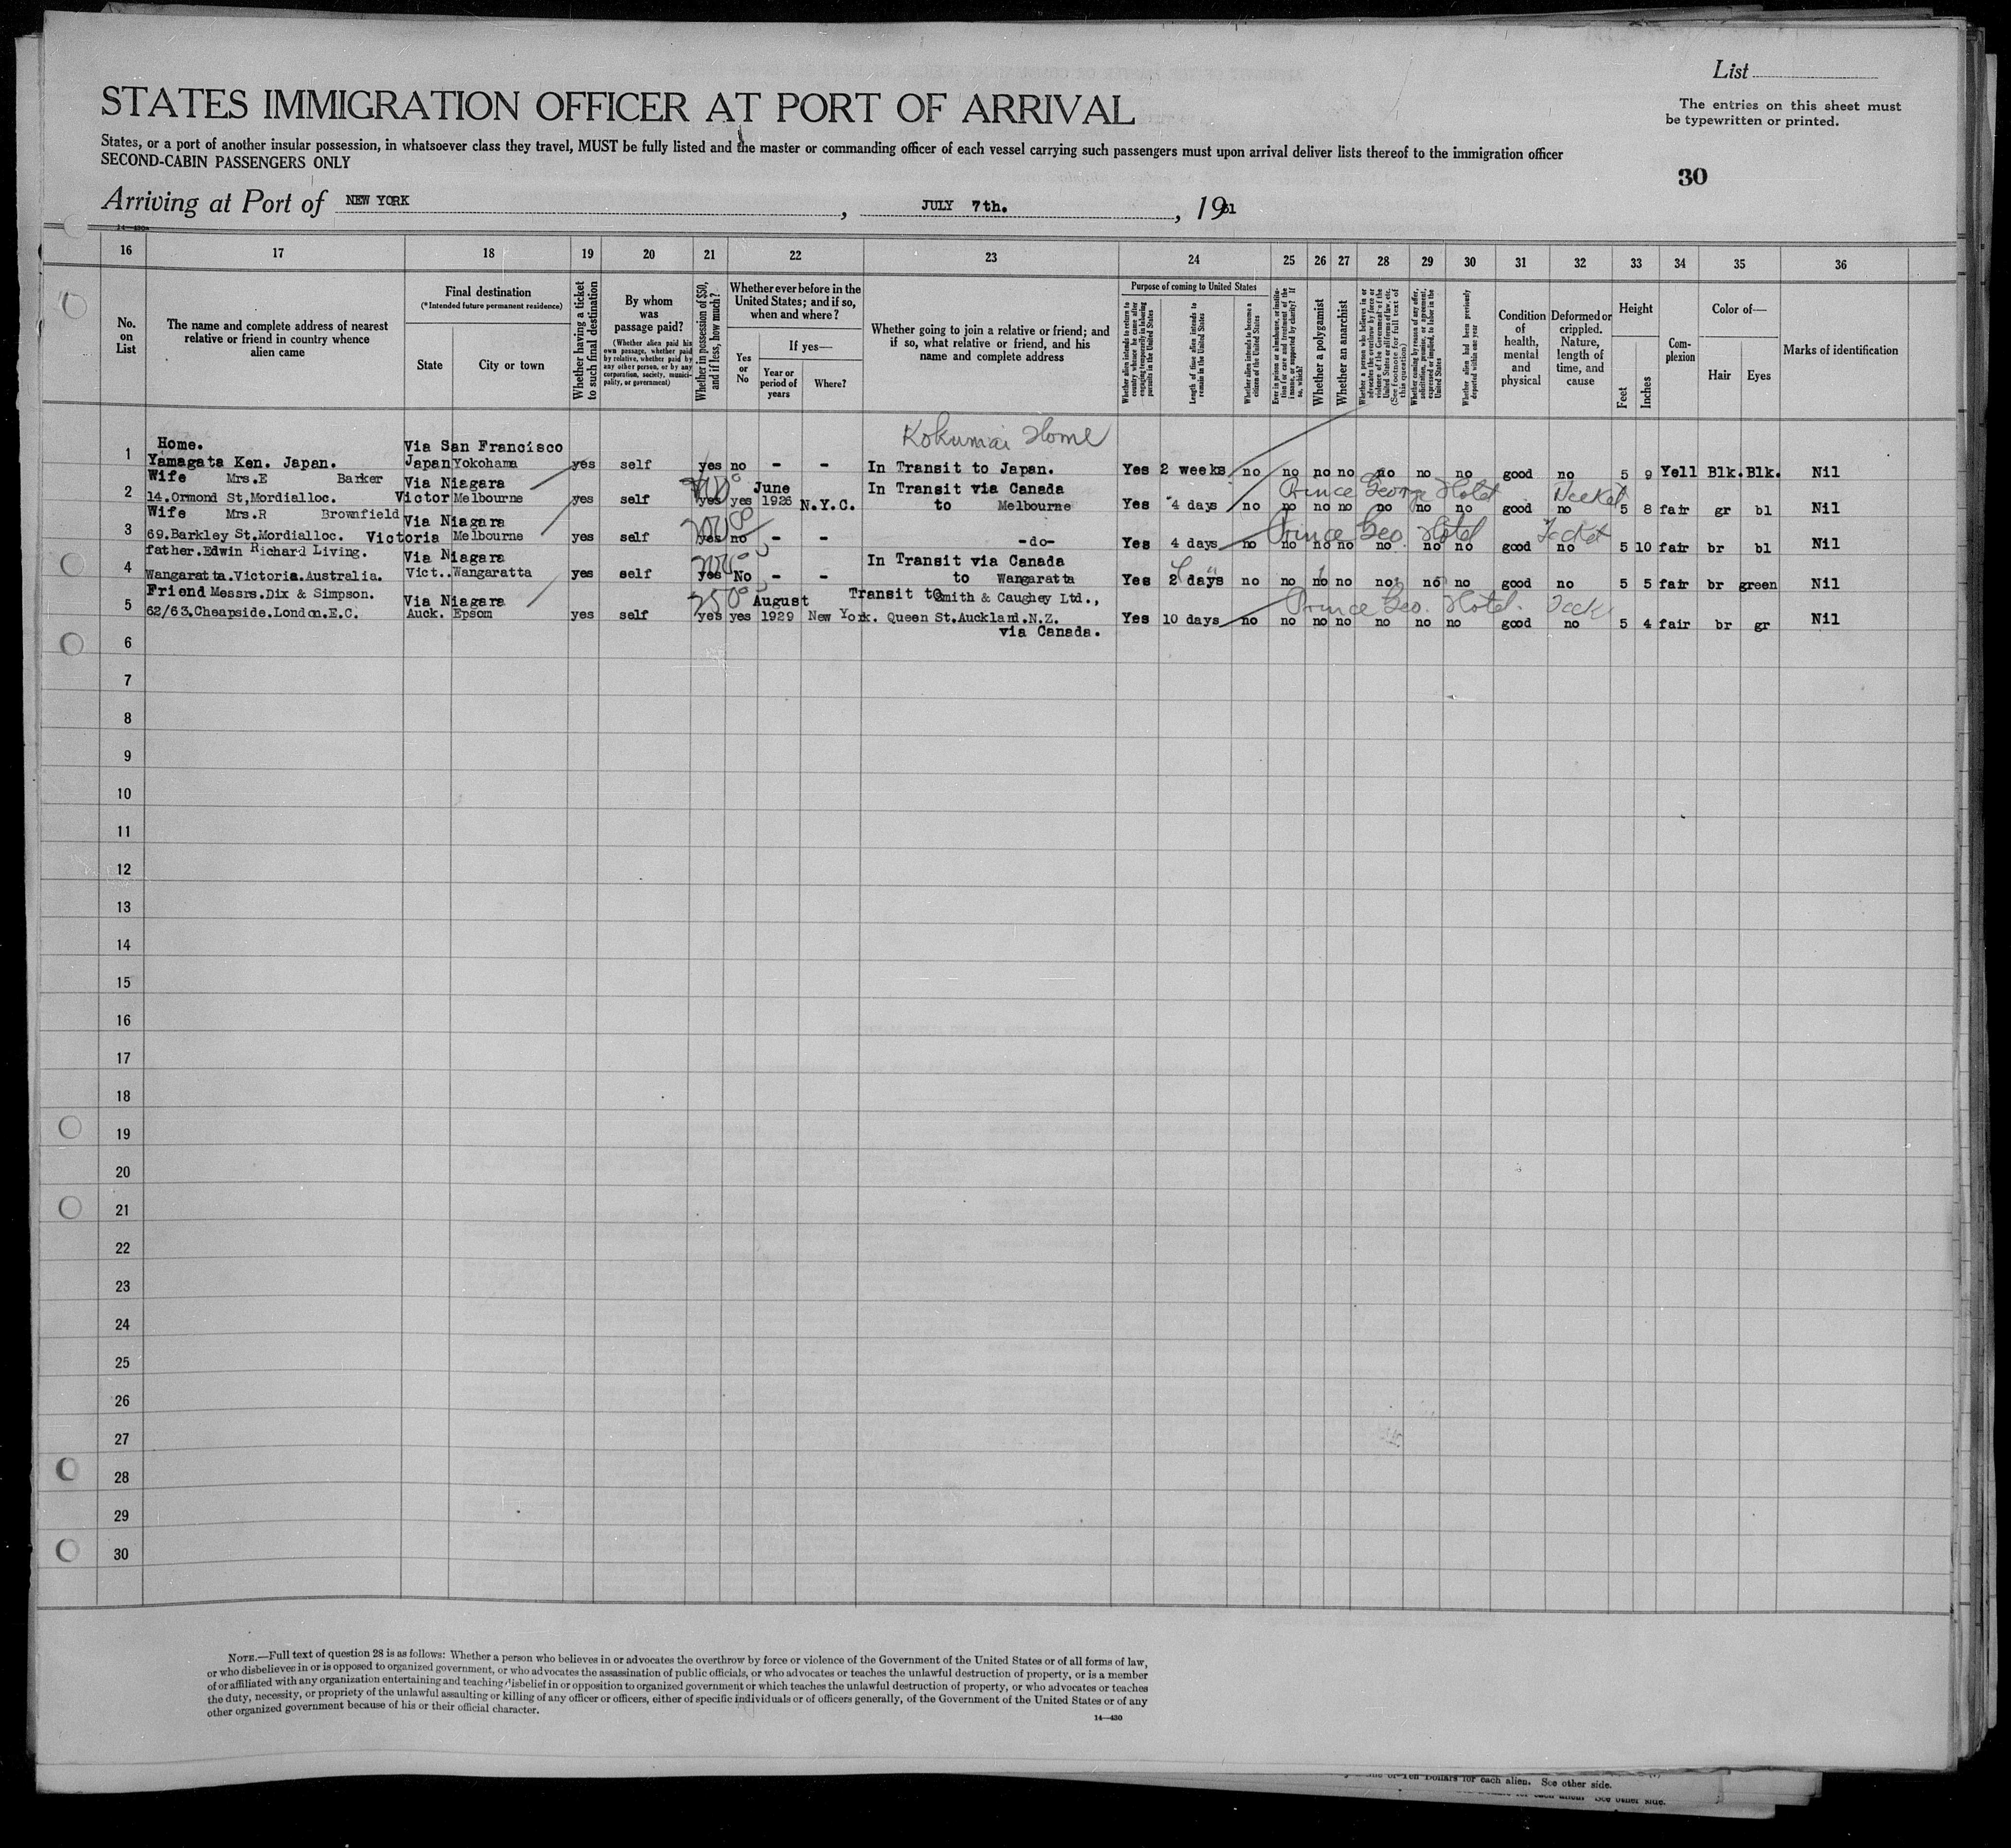 List
STATES IMMIGRATION OFFICER AT PORT OF ARRIVAL
The entries on this sheet must
be typewritten or printed.
States, or a port of another insular possession, in whatsoever class they travel, MUST be fully listed and the master or commanding officer of each vessel carrying such passengers must upon arrival deliver lists thereof to the immigration officer
SECOND-CABIN PASSENGERS ONLY
30
Arriving at Port of NEW YORK, JULY 7th., 1931
14—430
16 17 18 19 20 21 22 23 24 25 26 27 28 29 30 31 32 33 34 35 36
No. on List
The name and complete address of nearest relative or friend in country whence alien came
Final destination
(*Intended future permanent residence)
State
City or town
Whether having a ticket to such final destination
By whom was passage paid?
(Whether alien paid his own passage, whether paid by relative, whether paid by any other person, or by any corporation, society, municipality, or government)
Whether in possession of $50, and if less, how much?
Whether ever before in the United States; and if so, when and where?
Yes or No
If yes—
Year or period of years
Where?
Whether going to join a relative or friend; and if so, what relative or friend, and his name and complete address
Purpose of coming to United States
Whether alien intends to return to country whence he came after engaging temporarily in laboring pursuits in the United States
Length of time alien intends to remain in the United States
Whether alien intends to become a citizen of the United States
Ever in prison or almshouse, or institution for care and treatment of the insane, or supported by charity? If so, which?
Whether a polygamist
Whether an anarchist
Whether a person who believes in or advocates the overthrow by force or violence of the Government of the United States or all forms of law, etc. (See footnote for full text of this question)
Whether coming by reason of any offer, solicitation, promise, or agreement, expressed or implied, to labor in the United States
Whether alien had been previously deported within one year
Condition of health, mental and physical
Deformed or crippled. Nature, length of time, and cause
Height
Feet
Inches
Complexion
Color of—
Hair
Eyes
Marks of identification
Kokumai Home
Home. Via San Francisco
1 Yamagata Ken. Japan. Japan Yokohama yes self yes no - - In Transit to Japan. Yes 2 weeks no no no no no no no good no 5 9 Yell Blk. Blk. Nil
Wife Mrs.E Barker Via Niagara June In Transit via Canada Prince George Hotel
2 14.Ormond St,Mordialloc. Victor Melbourne yes self yes yes 1926 N.Y.C. to Melbourne Yes 4 days no no no no no no no good no 5 8 fair gr bl Nil
Wife Mrs.R Brownfield Via Niagara Prince Geo Hotel
3 69.Barkley St.Mordialloc. Victoria Melbourne yes self yes no - - -do- Yes 4 days no no no no no no no good no 5 10 fair br bl Nil
father.Edwin Richard Living. Via Niagara In Transit via Canada
4 Wangaratta.Victoria.Australia. Vict.. Wangaratta yes self yes No - - to Wangaratta Yes 2 days no no no no no no no good no 5 5 fair br green Nil
Friend Messrs.Dix & Simpson. Via Niagara 250 August Transit to Smith & Caughey Ltd., Prince Geo. Hotel.
5 62/63.Cheapside.London.E.C. Auck. Epsom yes self yes yes 1929 New York. Queen St.Auckland.N.Z. Yes 10 days no no no no no no no good no 5 4 fair br gr Nil
via Canada.
6
7
8
9
10
11
12
13
14
15
16
17
18
19
20
21
22
23
24
25
26
27
28
29
30
NOTE.—Full text of question 28 is as follows: Whether a person who believes in or advocates the overthrow by force or violence of the Government of the United States or of all forms of law,
or who disbelieves in or is opposed to organized government, or who advocates the assassination of public officials, or who advocates or teaches the unlawful destruction of property, or is a member
of or affiliated with any organization entertaining and teaching disbelief in or opposition to organized government or which teaches the unlawful destruction of property, or who advocates or teaches
the duty, necessity, or propriety of the unlawful assaulting or killing of any officer or officers, either of specific individuals or of officers generally, of the Government of the United States or of any
other organized government because of his or their official character.
14—430
Ten Dollars for each alien. See other side.
See other side.